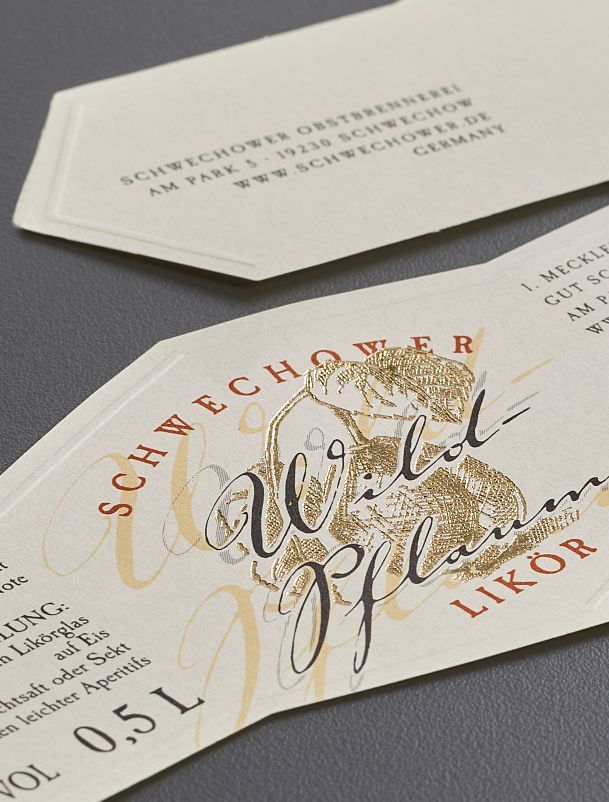 SCHWECHOWER OBSTBRENNEREI
AM PARK 5 · 19230 SCHWECHOW
WWW.SCHWECHOWER.DE
GERMANY
1. MECKLE
GUT SC
AM P
WW
SCHWECHOWER
Wild-
Pflaum
LIKÖR
ote
LUNG:
n Likörglas
auf Eis
chtsaft oder Sekt
en leichter Aperitifs
VOL 0,5 L